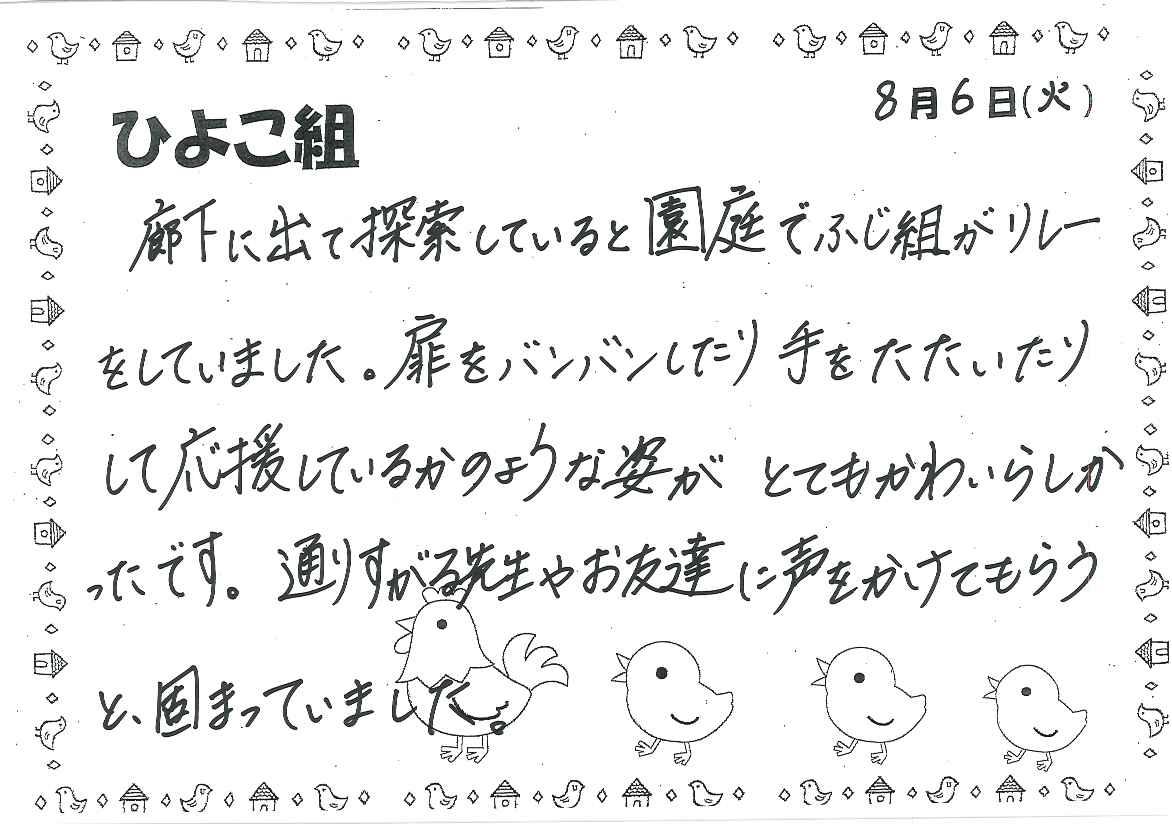 8月6日(火)
ひよこ組
廊下に出て探索していると園庭でふじ組がリレー
をしていました。扉をバンバンしたり手をたたいたり
して応援しているかのような姿がとてもかわいらしか
ったです。通りすがる先生やお友達に声をかけてもらう
と、固まっていました。